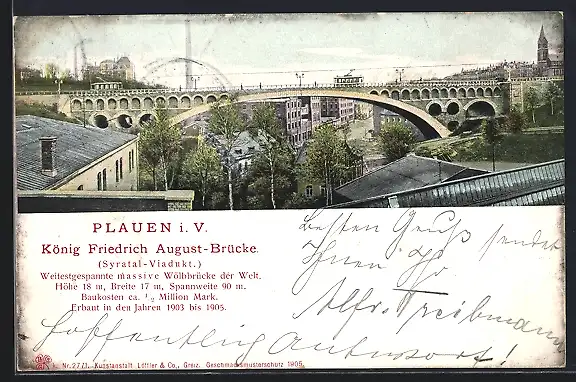 PLAUEN i. V.
König Friedrich August-Brücke.
(Syratal-Viadukt.)
Weitestgespannte massive Wölbbrücke der Welt.
Höhe 18 m, Breite 17 m, Spannweite 90 m.
Baukosten ca. ½ Million Mark.
Erbaut in den Jahren 1903 bis 1905.
Besten Gruß sendet
Ihnen Ihr
Alfr. Treibmann
Hoffentlich Antwort!
Nr. 2771. Kunstanstalt Löffler & Co., Greiz. Geschmacksmusterschutz 1905.